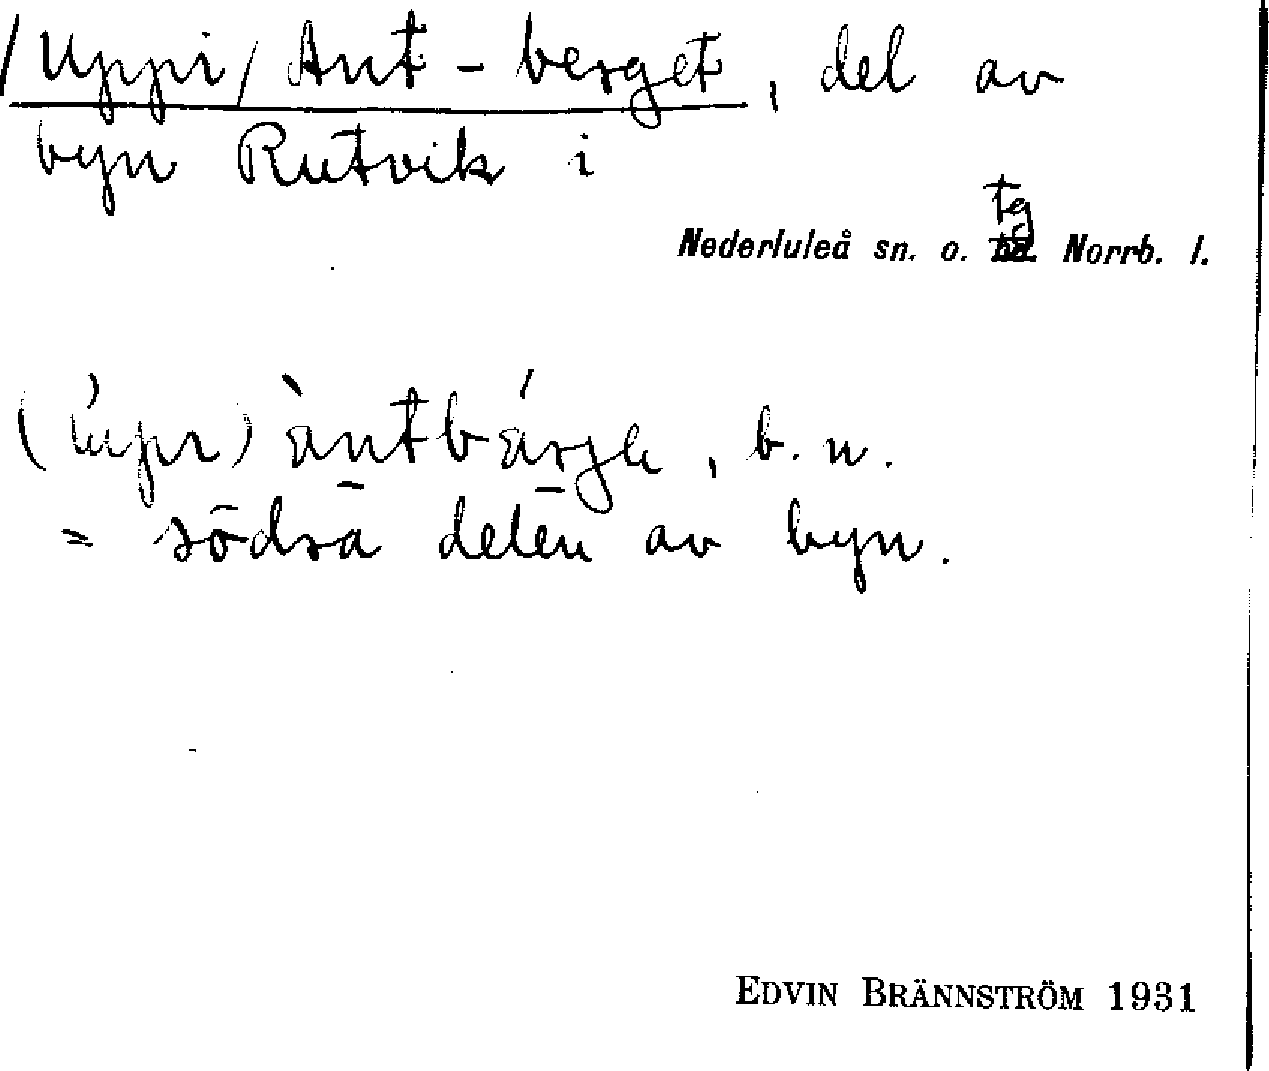 /Uppi/ Ant-berget, del av
byn Rutvik i
tg
Nederluleå sn. o. Norrb. l.
(ùpı) àntbárge, b. n.
= södra delen av byn.
EDVIN BRÄNNSTRÖM 1931